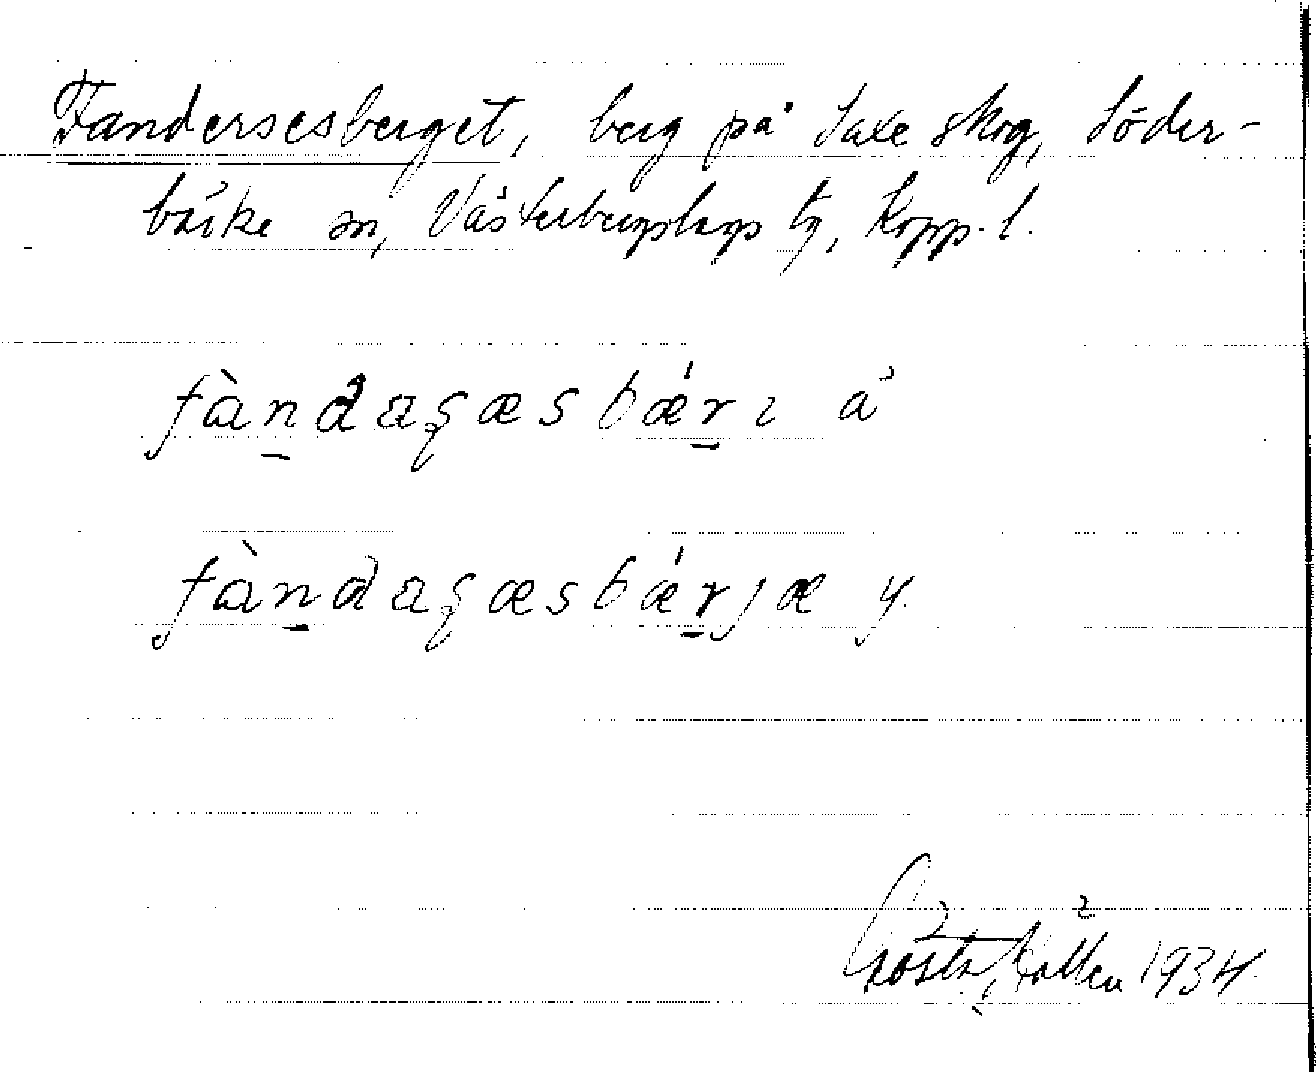 Fandersesberget, berg på Saxe skog, Söder-
bärke sn, Västerbergslags tg, Kopp. l.
fàndaʂæsbǽrɩ å
fàndaʂæsbǽrjæ y.
Gösta 1934.